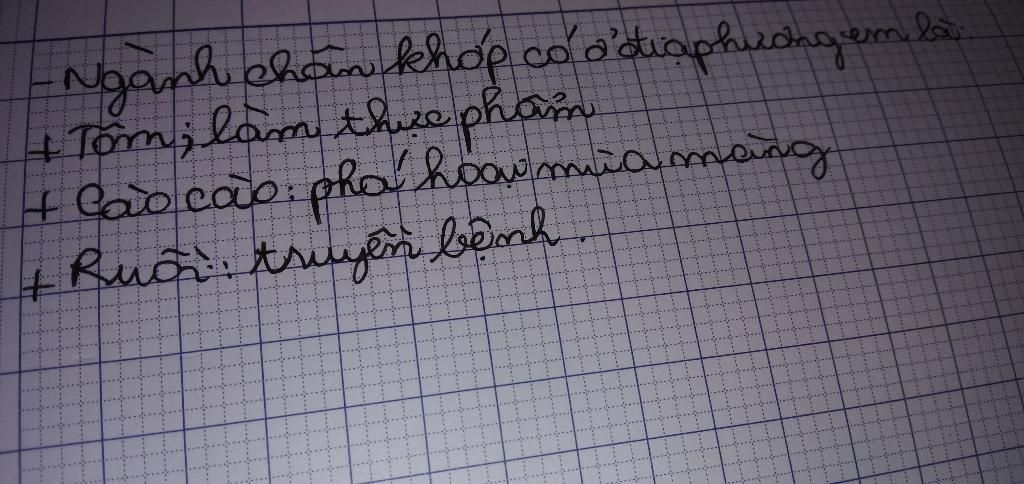 - Ngành chân khớp có ở địa phương em là:
+ Tôm; làm thực phẩm
+ Cào cào: phá hoại mùa màng
+ Ruồi: truyền bệnh.